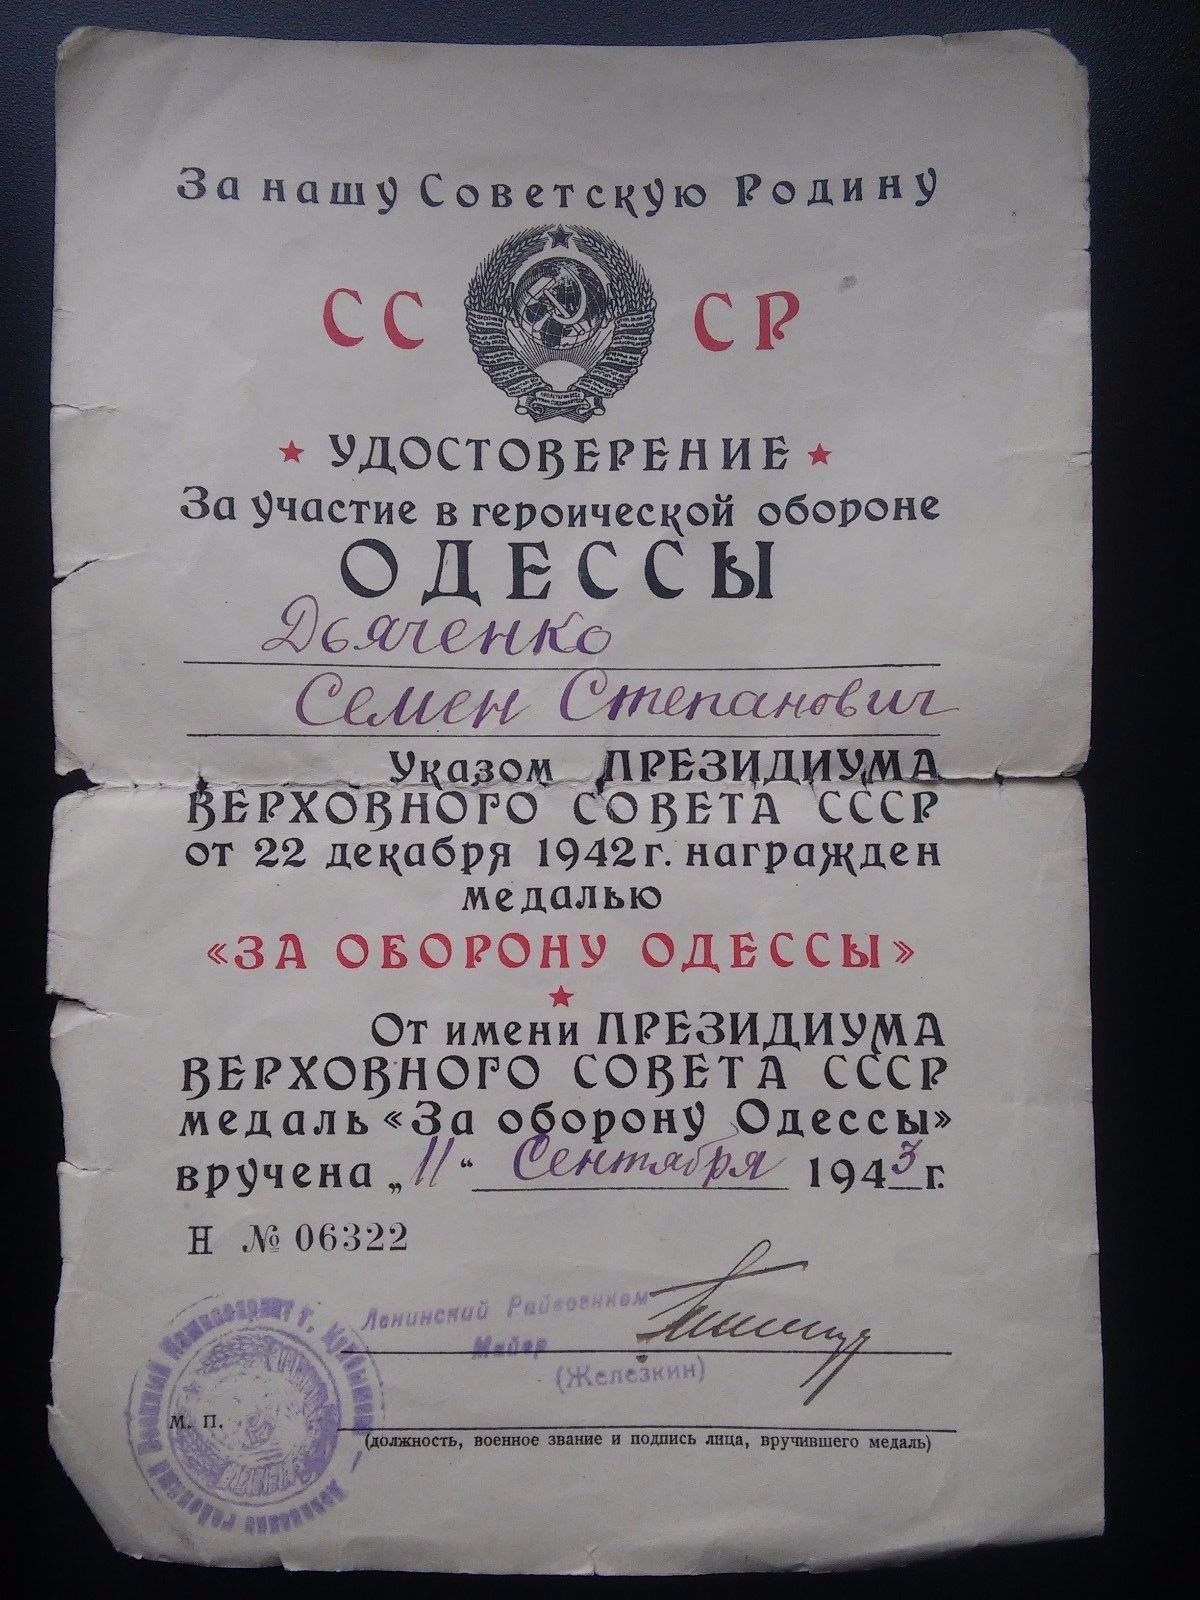 За нашу Советскую Родину
СС СР
УДОСТОВЕРЕНИЕ
За участие в героической обороне
ОДЕССЫ
Дьяченко
Семен Степанович
Указом ПРЕЗИДИУМА
ВЕРХОВНОГО СОВЕТА СССР
от 22 декабря 1942 г. награжден
медалью
«ЗА ОБОРОНУ ОДЕССЫ»
От имени ПРЕЗИДИУМА
ВЕРХОВНОГО СОВЕТА СССР
медаль «За оборону Одессы»
вручена „11“ Сентября 1943 г.
Н № 06322
Ленинский Райвоенком
Майор
(Железкин)
М. П.
(должность, военное звание и подпись лица, вручившего медаль)
Военный Комиссариат г. Куйбышева